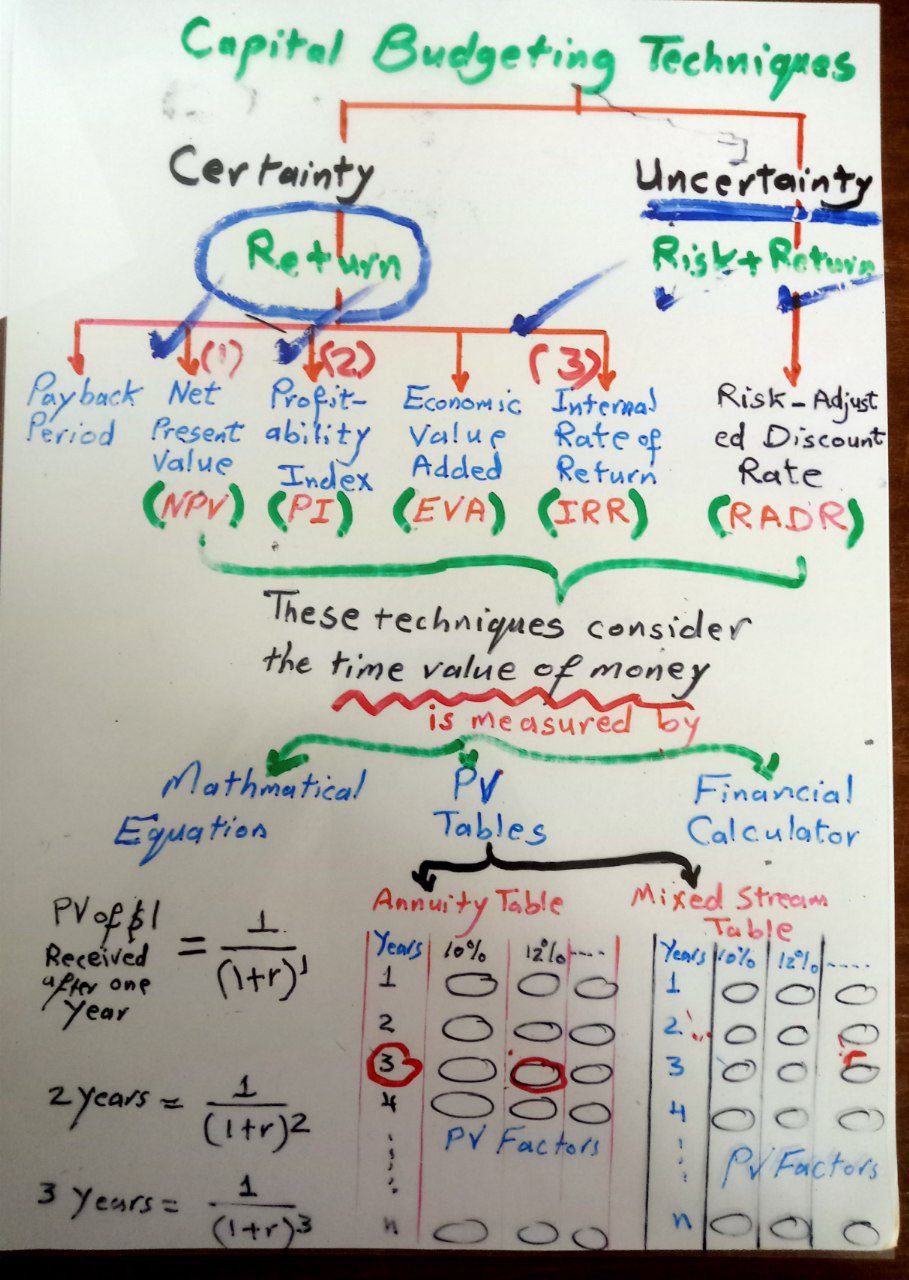 Capital Budgeting Techniques
Certainty
Uncertainty
Return
Risk + Return
(1) (2) (3)
Payback
Period
Net
Present
Value
(NPV)
Profit-
ability
Index
(PI)
Economic
Value
Added
(EVA)
Internal
Rate of
Return
(IRR)
Risk-Adjust
ed Discount
Rate
(RADR)
These techniques consider
the time value of money
is measured by
Mathmatical
Equation
PV
Tables
Financial
Calculator
PV of $1
Received
after one
Year
= 1/(1+r)^1
2 years = 1/(1+r)^2
3 years = 1/(1+r)^3
Annuity Table
Years 10% 12% ....
1
2
3
4
PV Factors
n
Mixed Stream
Table
Years 10% 12% ....
1
2
3
4
PV Factors
n